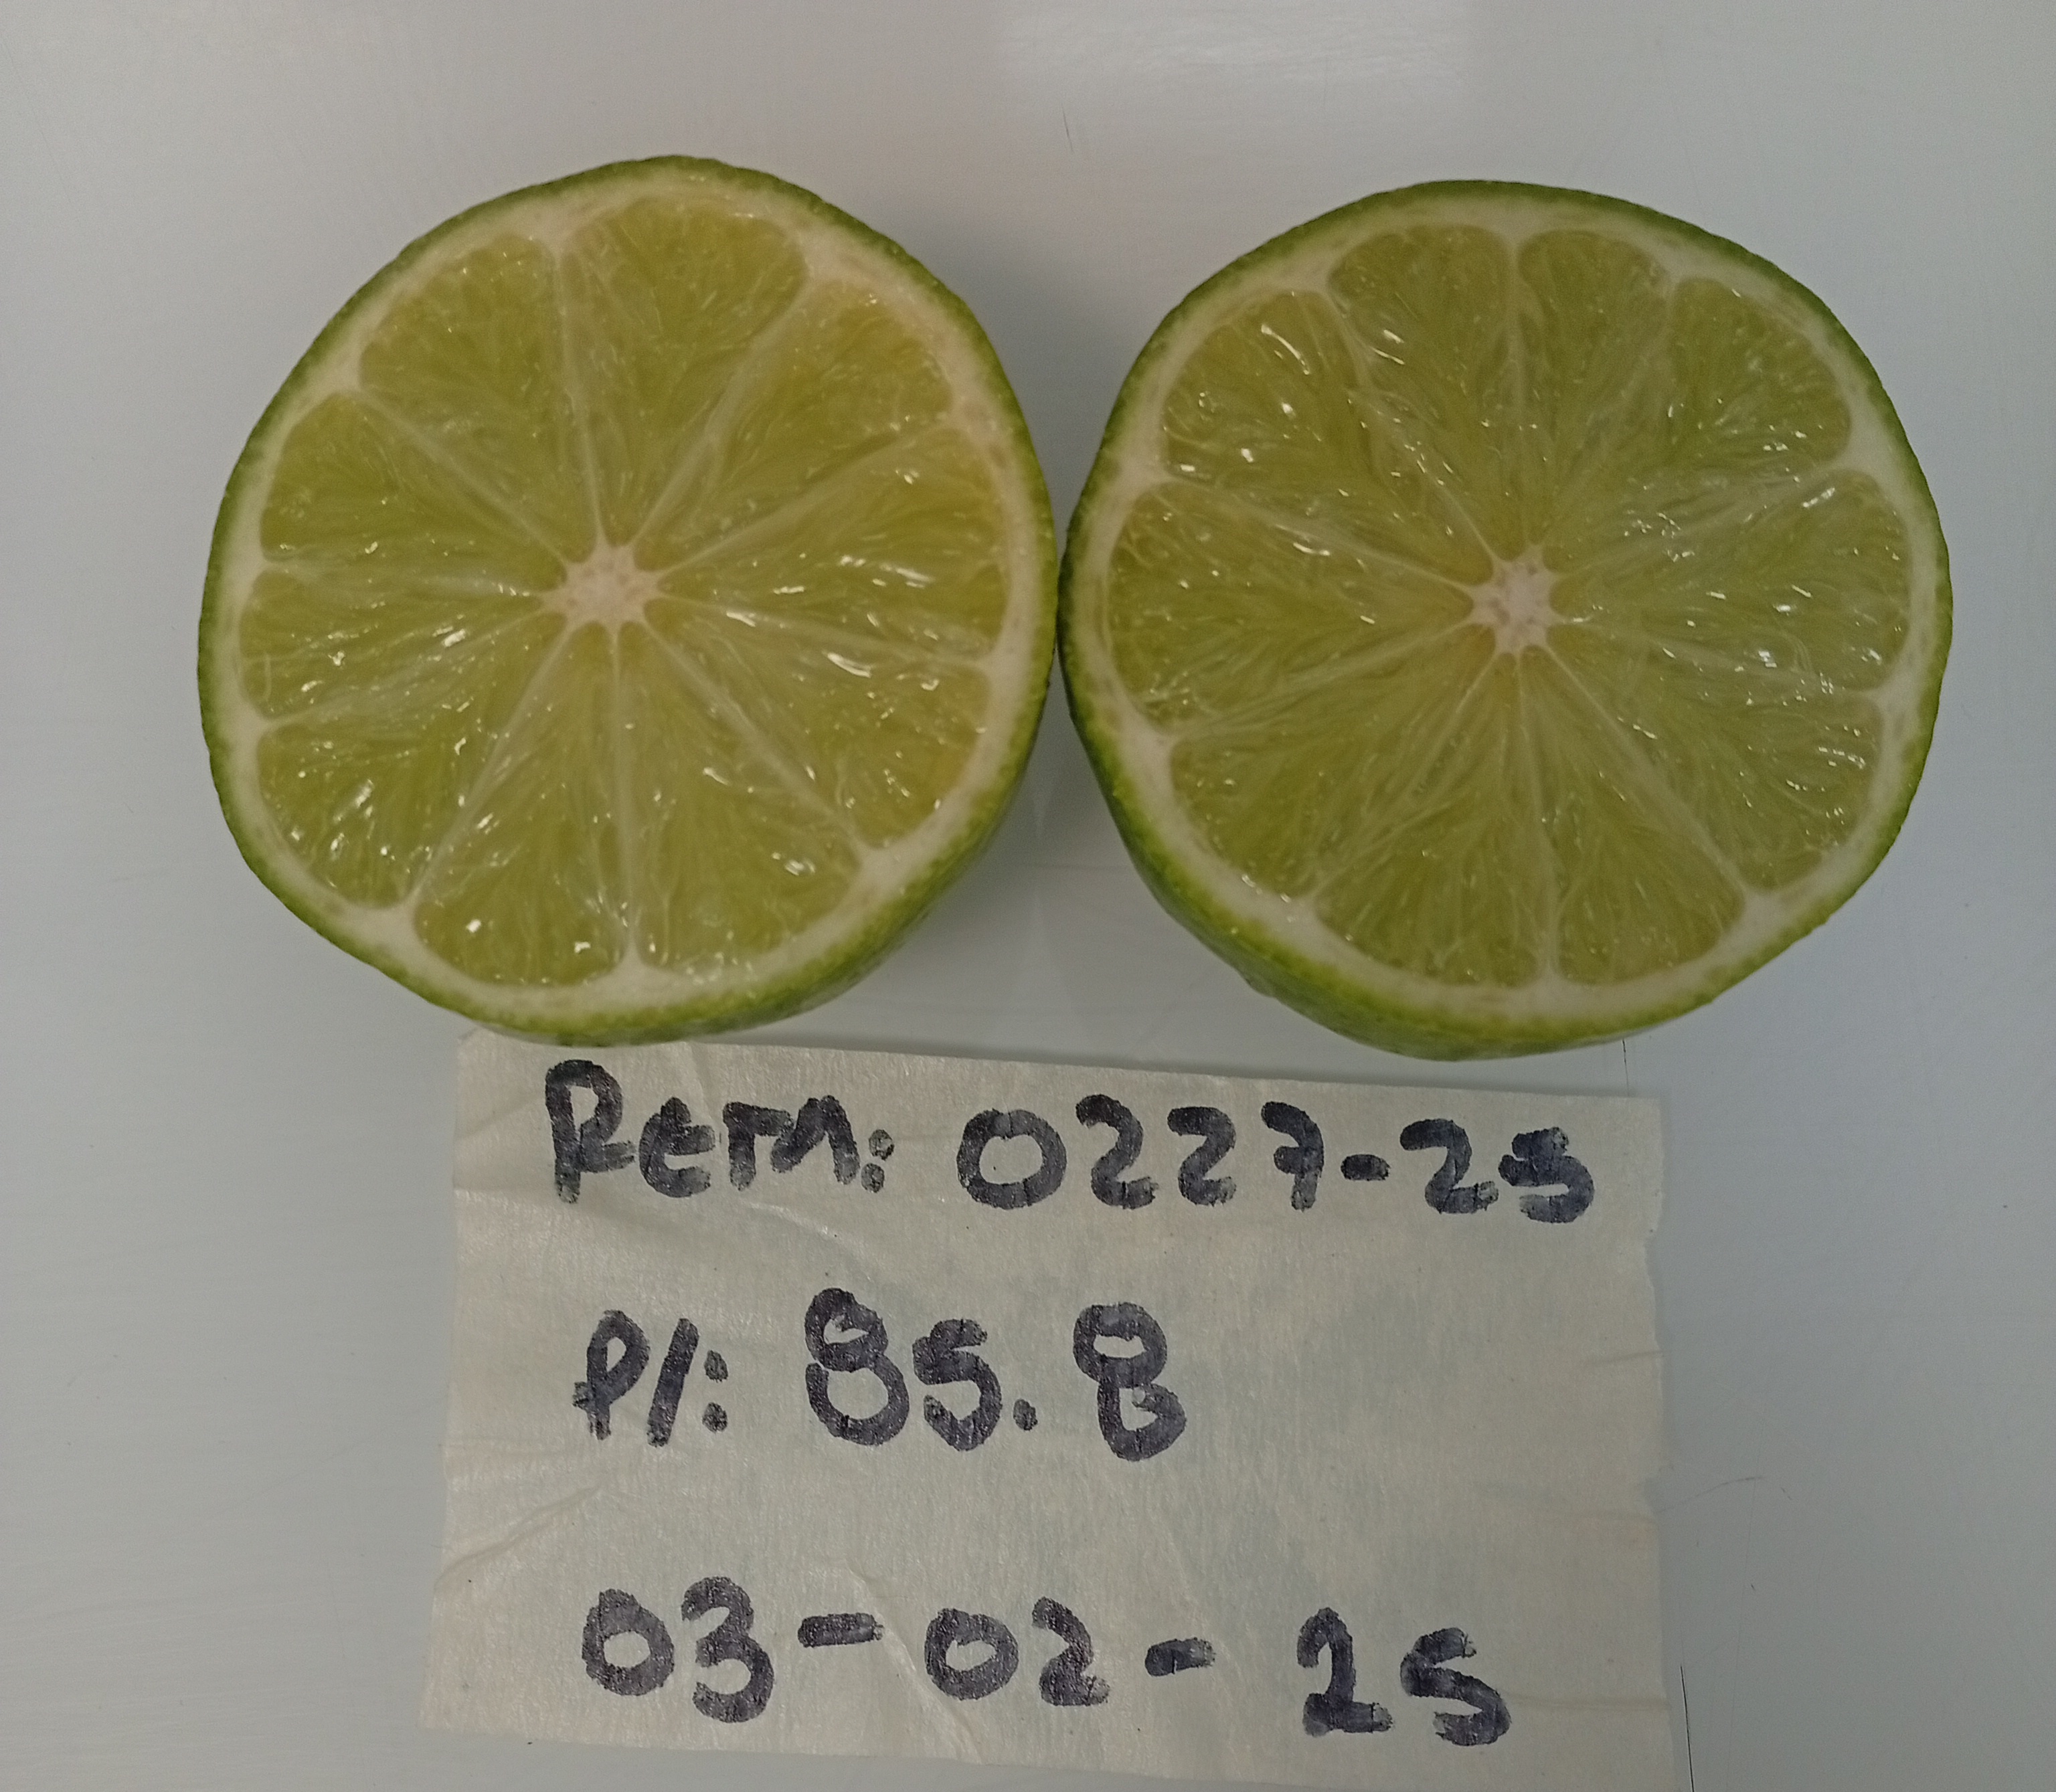 Rem: 0227-25
P/: 85.8
03-02-25